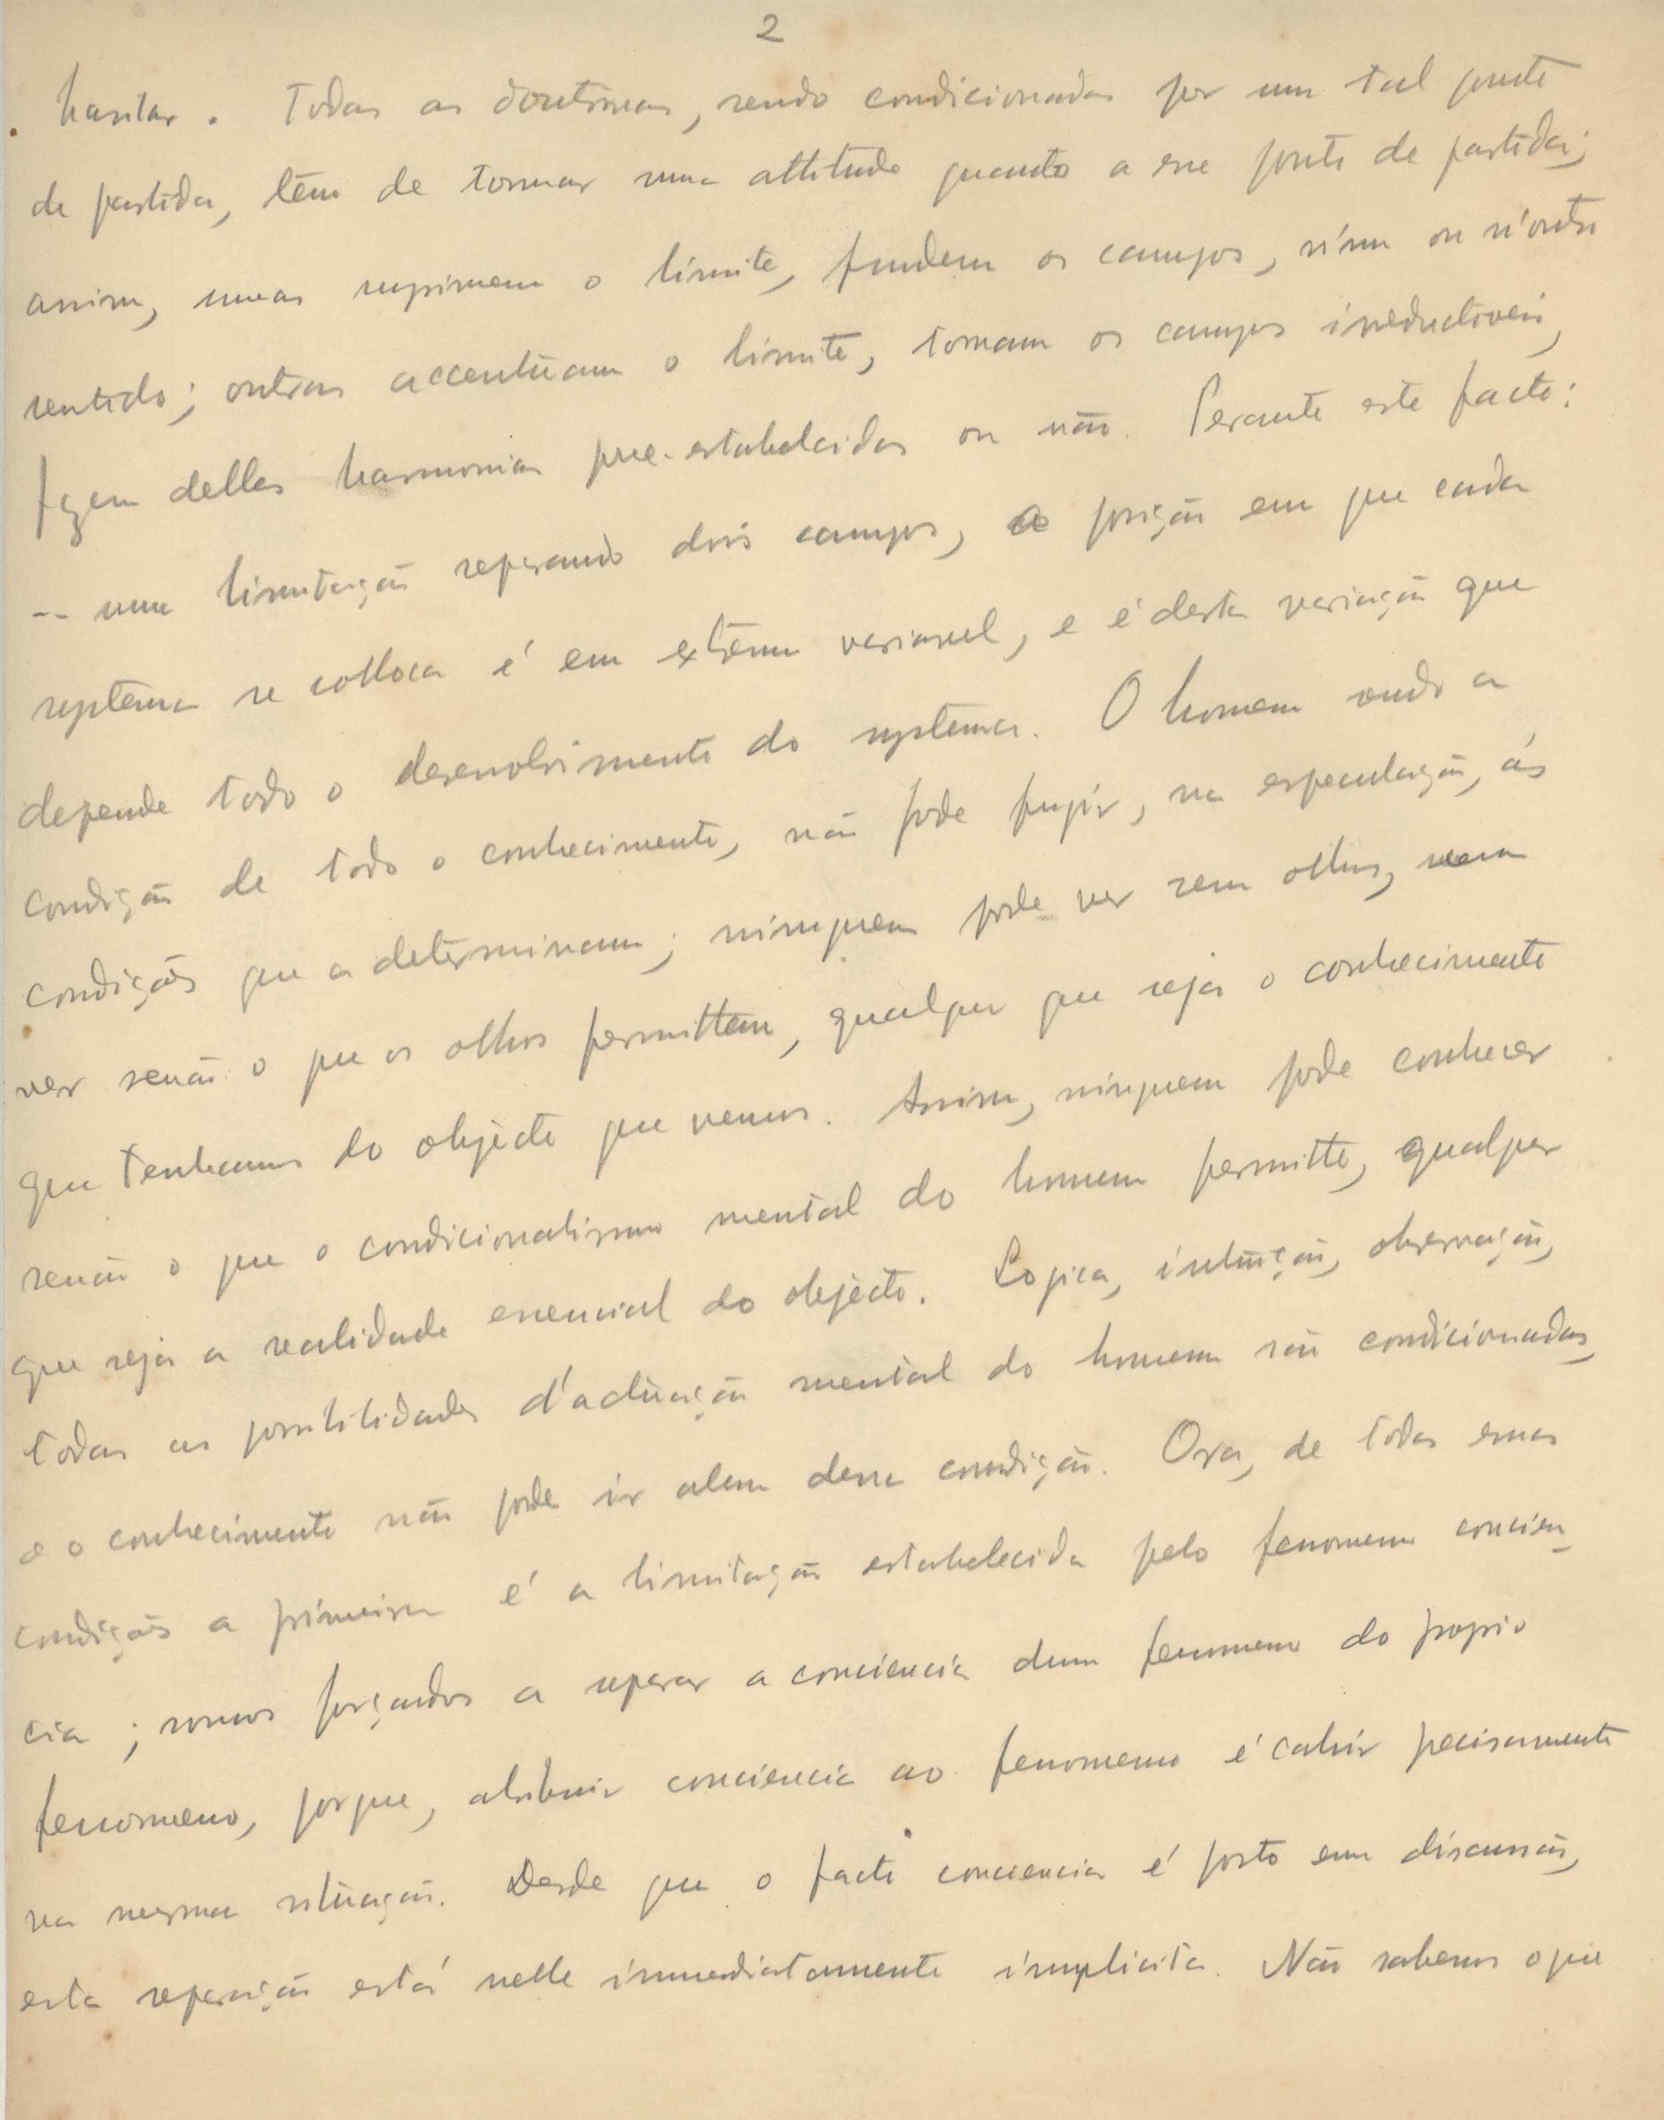 2
hasitar. Todas as doutrinas, sendo condicionadas por um tal ponto
de partida, têm de tomar uma attitude quanto a esse ponto de partida;
assim, umas suprimem o limite, fundem os campos, n'um ou n'outro
sentido; outras accentùam o limite, tornam os campos irreductiveis,
fazem delles harmonias pre-estabelecidas ou não. Perante este facto:
-- uma limitação separando dois campos, a posição em que cada
systema se colloca é em extremo variavel, e é desta variação que
depende todo o desenvolvimento do systema. O homem sendo a
condição de todo o conhecimento, não pode fugir, na especulação, ás
condições que a determinam; ninguem pode ver sem olhos, nem
ver senão o que os olhos permittem, qualquer que seja o conhecimento
que tenhamos do objecto que vemos. Assim, ninguem pode conhecer
senão o que o condicionalismo mental do homem permitte, qualquer
que seja a realidade essencial do objecto. Logica, intuição, observação,
todas as possibilidades d'actuação mental do homem são condicionadas,
e o conhecimento não pode ir alem dessa condição. Ora, de todas essas
condições a primeira é a limitação estabelecida pelo fenomeno concien-
cia; somos forçados a separar a conciencia dum fenomeno do proprio
fenomeno, porque, atribuir conciencia ao fenomeno é cahir precisamente
na mesma situação. Desde que o facto conciencia é posto em discussão,
esta separação está nelle immediatamente implicita. Não sabemos o que